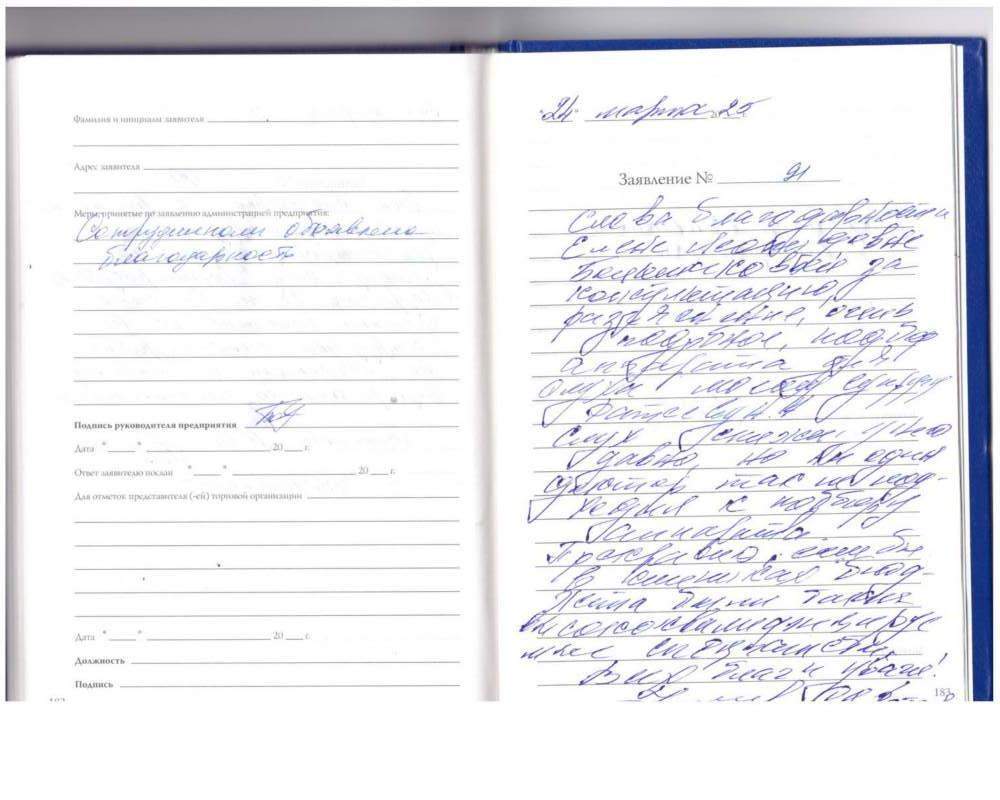 Фамилия и инициалы заявителя
Адрес заявителя
Меры, принятые по заявлению администрацией предприятия:
Сотрудникам объявлена
благодарность
Подпись руководителя предприятия
Дата " " 20 г.
Ответ заявителю послан " " 20 г.
Для отметок представителя (-ей) торговой организации
Дата " " 20 г.
Должность
Подпись
"24" марта 25
Заявление № 91
Слова благодарности
Елене
за
консультацию,
очень
подбор
аппарата для
слуха моему супругу
Слух снижен у него
давно, но ни один
доктор так не под-
ходил к подбору
аппарата
Прекрасно, если бы
в
были такие
высококвалифициро
специалисты
Всех благ и удачи!
183